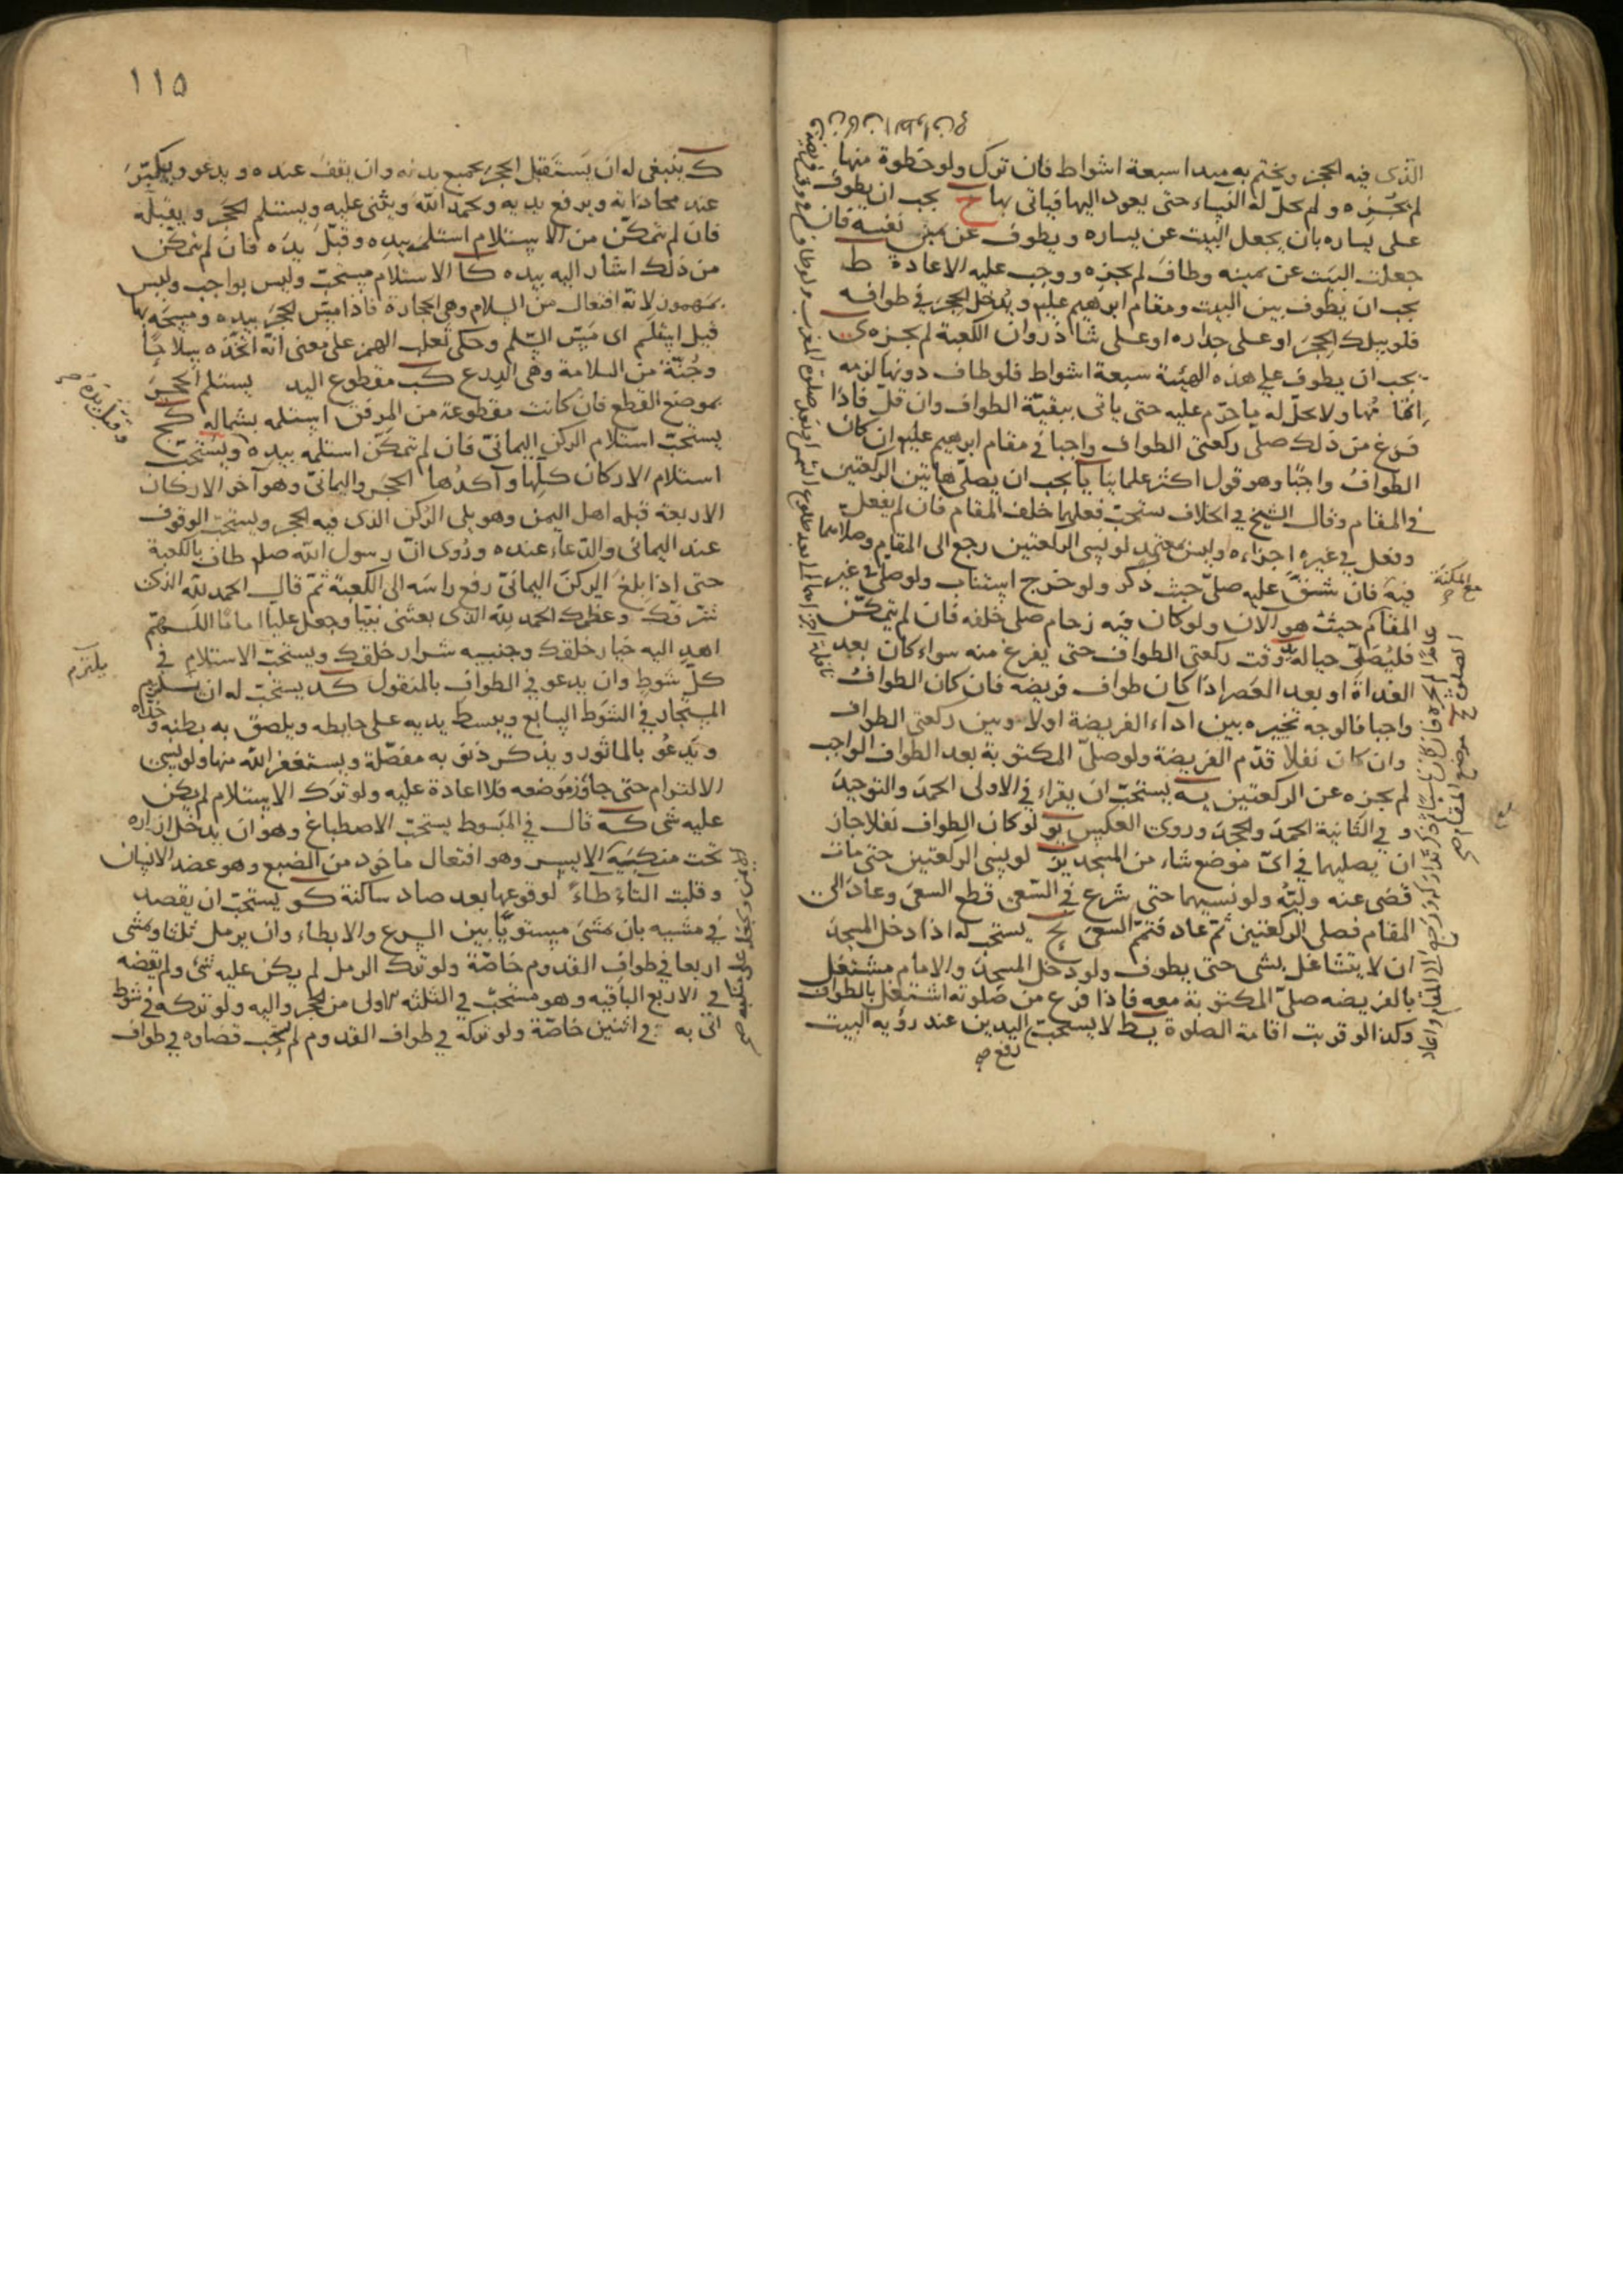 الذى فيه الحجر ويختم به هكذا سبعة اشواط فان ترك ولو خطوة منها
لم يجزه ولم يحل له النساء حتى يعود اليها فياتى بها ح يجب ان يطوف
على يساره بان يجعل البيت عن يساره ويطوف عن يمين نفسه فان
جعلت البيت عن يمينه وطاف لم يجزه ووجب عليه الاعادة ط
يجب ان يطوف بين البيت ومقام ابرهيم عليه ويدخل الحجر في طوافه
فلو سلك الحجر او على جداره او على شاذروان الكعبة لم يجزه ى
يجب ان يطوف على هذه الهيئة سبعة اشواط فلو طاف دونها لزمه
اتمامها ولا يحل له ما حرم عليه حتى ياتى ببقية الطواف وان قل فاذا
فرغ من ذلك صلى ركعتى الطواف واجبا في مقام ابرهيم عليه ان كان
الطواف واجبا وهو قول اكثر علمائنا يا يجب ان يصلى هاتين الركعتين
في المقام وقال الشيخ في الخلاف يستحب فعلهما خلف المقام فان لم يفعل
وفعل في غيره اجزاه وليس بمعتمد لو نسى الركعتين رجع الى المقام وصلاهما
فيه فان شق عليه صلى حيث ذكر ولو خرج استناب ولو صلى في غير
المقام حيث هو الآن ولو كان فيه زحام صلى خلفه فان لم يتمكن
فليصلى حياله يد وقت ركعتى الطواف حتى يفرغ منه سواء كان بعد
الغداة او بعد العصر اذا كان طواف فريضه فان كان الطواف
واجبا فالوجه تخييره بين اداء الفريضة اولا وبين ركعتى الطواف
وان كان نفلا قدم الفريضة ولو صلى المكتوبة بعد الطواف الواجب
لم يجزه عن الركعتين يه يستحب ان يقراء في الاولى الحمد والتوحيد
و في الثانية الحمد والجحد وروى العكس يو لو كان الطواف نفلا جاز
ان يصليهما في اى موضع شاء من المسجد يز لو نسى الركعتين حتى مات
قضى عنه وليه ولو نسيهما حتى شرع في السعى قطع السعى وعاد الى
المقام فصلى الركعتين ثم عاد فتمم السعى يح يستحب له اذا دخل المسجد
ان لا يتشاغل بشى حتى يطوف ولو دخل المسجد والامام مشتغل
بالفريضه صلى المكتوبة معه فاذا فرغ من صلوته اشتغل بالطواف
وكذا لو قربت اقامة الصلوة يط لا يستحب اليدين عند رؤيه البيت
رفع صح
مع المكنة
١١٥
ك ينبغى له ان يستقبل الحجر بجميع بدنه وان يقف عنده ويدعو ويكبر
عند محاذاته ويرفع يديه ويحمد الله ويثنى عليه ويستلم الحجر ويقبله
فان لم يتمكن من الاستلام استلمه بيده وقبل يده فان لم يتمكن
من ذلك اشار اليه بيده كا الاستلام مستحب وليس بواجب وليس
بمهموز لانه افتعال من السلام وهى الحجارة فاذا مس الحجر بيده ومسحه بها
قيل استلم اى مس السلم وحكى ثعلب الهمز على معنى انه اتخذه سلاحا
وجنة من السلامة وهى الدرع كب مقطوع اليد يستلم الحجر
بموضع القطع فان كانت مقطوعة من المرفق استلمه بشماله كج
يستحب استلام الركن اليمانى فان لم يتمكن استلمه بيده ويستحب
استلام الاركان كلها وآكدها الحجر واليمانى وهو آخر الاركان
الاربعة قبله اهل اليمن وهو يلى الركن الذى فيه الحجر ويستحب الوقوف
عند اليمانى والدعاء عنده وروى ان رسول الله صلم طاف بالكعبة
حتى اذا بلغ الركن اليمانى رفع راسه الى الكعبة ثم قال الحمد لله الذى
شرفك وعظمك الحمد لله الذى بعثنى نبيا وجعل عليا اماما اللهم
اهد اليه خيار خلقك وجنبه شرار خلقك ويستحب الاستلام في
كل شوط وان يدعو في الطواف بالمنقول كد يستحب له ان يلتزم
المستجار في الشوط السابع ويبسط يديه على حايطه ويلصق به بطنه وخداه
ويدعو بالماثور ويذكر ذنوبه مفصلة ويستغفر الله منها ولو نسى
الالتزام حتى جاوز موضعه فلا اعادة عليه ولو ترك الاستلام لم يكن
عليه شى كه قال في المبسوط يستحب الاصطباغ وهو ان يدخل ازاره
تحت منكبيه الايسر وهو افتعال ماخود من الضبع وهو عضد الانسان
وقلبت التاء طاء لوقوعها بعد صاد ساكنة كو يستحب ان يقصد
في مشيه بان يمشى مستويا بين السرع والابطاء وان يرمل ثلثا ويمشى
اربعا في طواف القدوم خاصة ولو ترك الرمل لم يكن عليه شئ ولم يقضه
في الاربع الباقيه وهو مستحب في الثلثه الاولى من الحجر واليه ولو تركه في شوط
اتى به في اثنين خاصة ولو تركه في طواف القدوم لم يجب قضاوه في طواف
وقبل يده
يلتزم